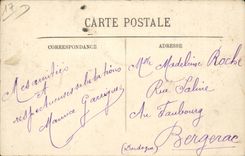 CARTE POSTALE
CORRESPONDANCE
ADRESSE
Mes amitiés
et
respectueuses salutations
Maurice Garrigue
Mlle Madeleine Roche
Rue Saline
Au Faubourg
Bergerac
(Dordogne)